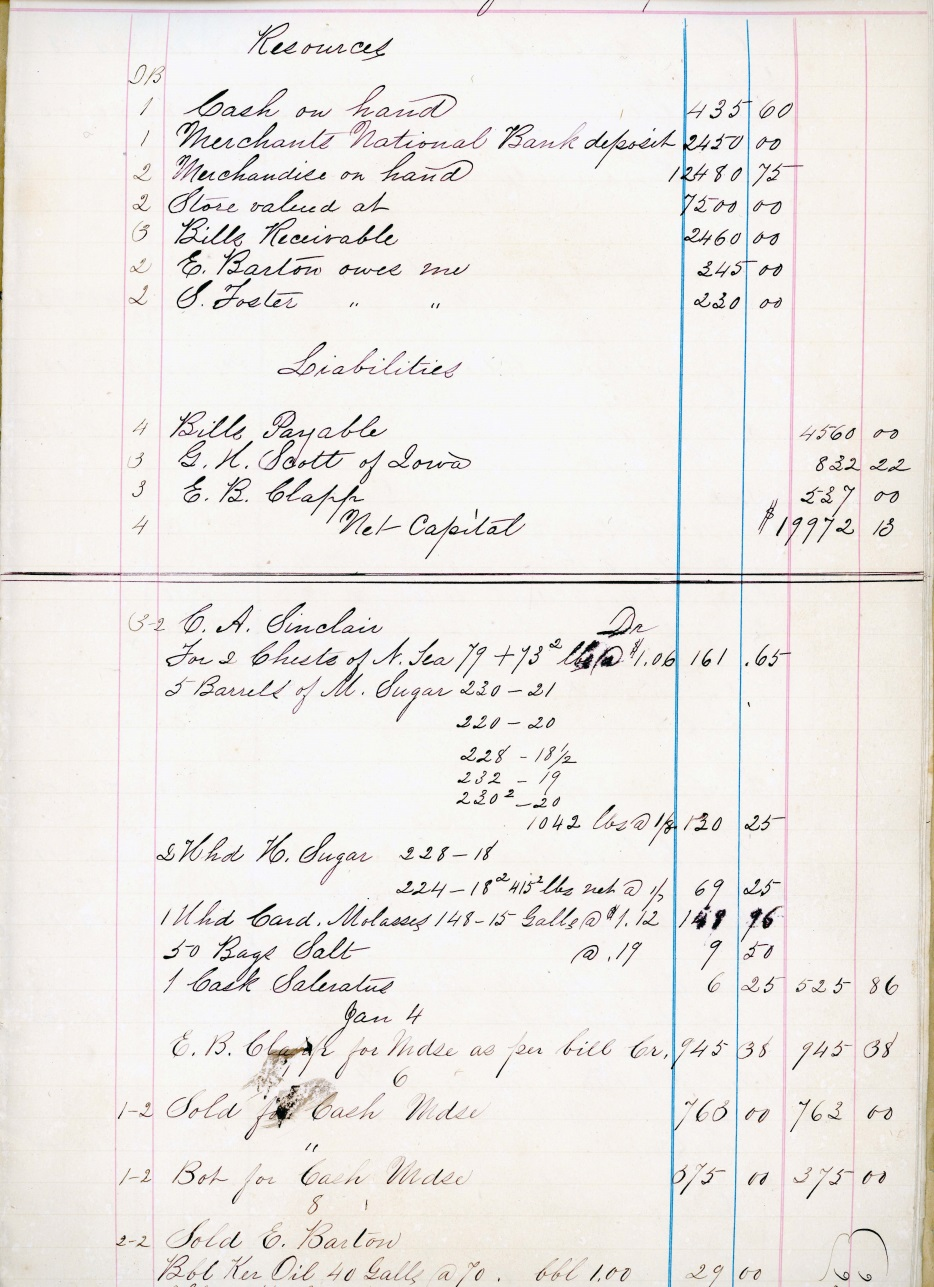 Resources
DB
1 Cash on hand 435 60
1 Merchants National Bank deposit 2450 00
2 Merchandise on hand 12480 75
2 Store valued at 7500 00
3 Bills Receivable 2460 00
2 E. Barton owes me 345 00
2 S. Foster " " 230 00
Liabilities
4 Bills Payable 4560 00
3 G. H. Scott of Iowa 832 22
3 E. B. Clapp 537 00
4 Net Capital $19972 13
3-2 C. A. Sinclair Dr
For 2 Chests of N. Tea 79 + 73² lbs @ $1.06 161 .65
5 Barrels of M. Sugar 230 - 21
220 - 20
228 - 18 1/2
232 - 19
230² - 20
1042 lbs @ 1/8 130 25
2 Hhd H. Sugar 228 - 18
224 - 18² 415² lbs net @ 69 25
1 Hhd Card. Molasses 148 - 15 Galls @ $1.12 148 96
50 Bags Salt @ .19 9 50
1 Cask Saleratus 6 25 525 86
Jan 4
E. B. Clapp for Mdse as per bill Cr. 945 38 945 38
6
1-2 Sold for Cash Mdse 763 00 763 00
"
1-2 Bot for Cash Mdse 375 00 375 00
8
2-2 Sold E. Barton
Bbl Ker Oil 40 Galls @ 70. bbl 1.00 29 00